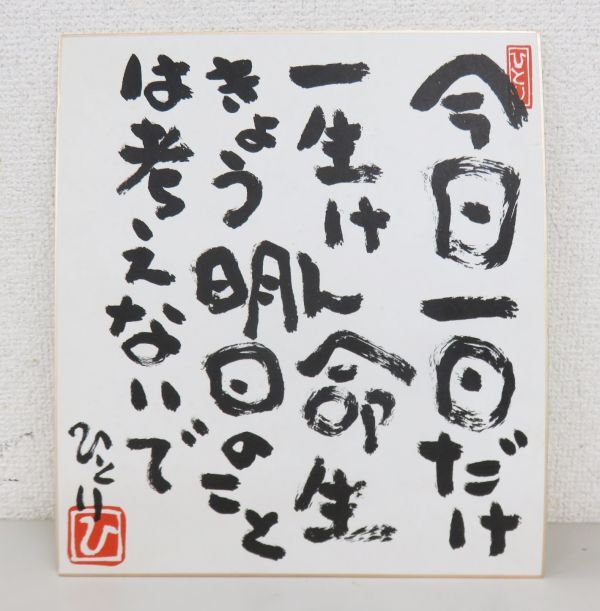 今日一日だけ
一生けん命生
きょう明日のこと
は考えないで
ひとり
ひ